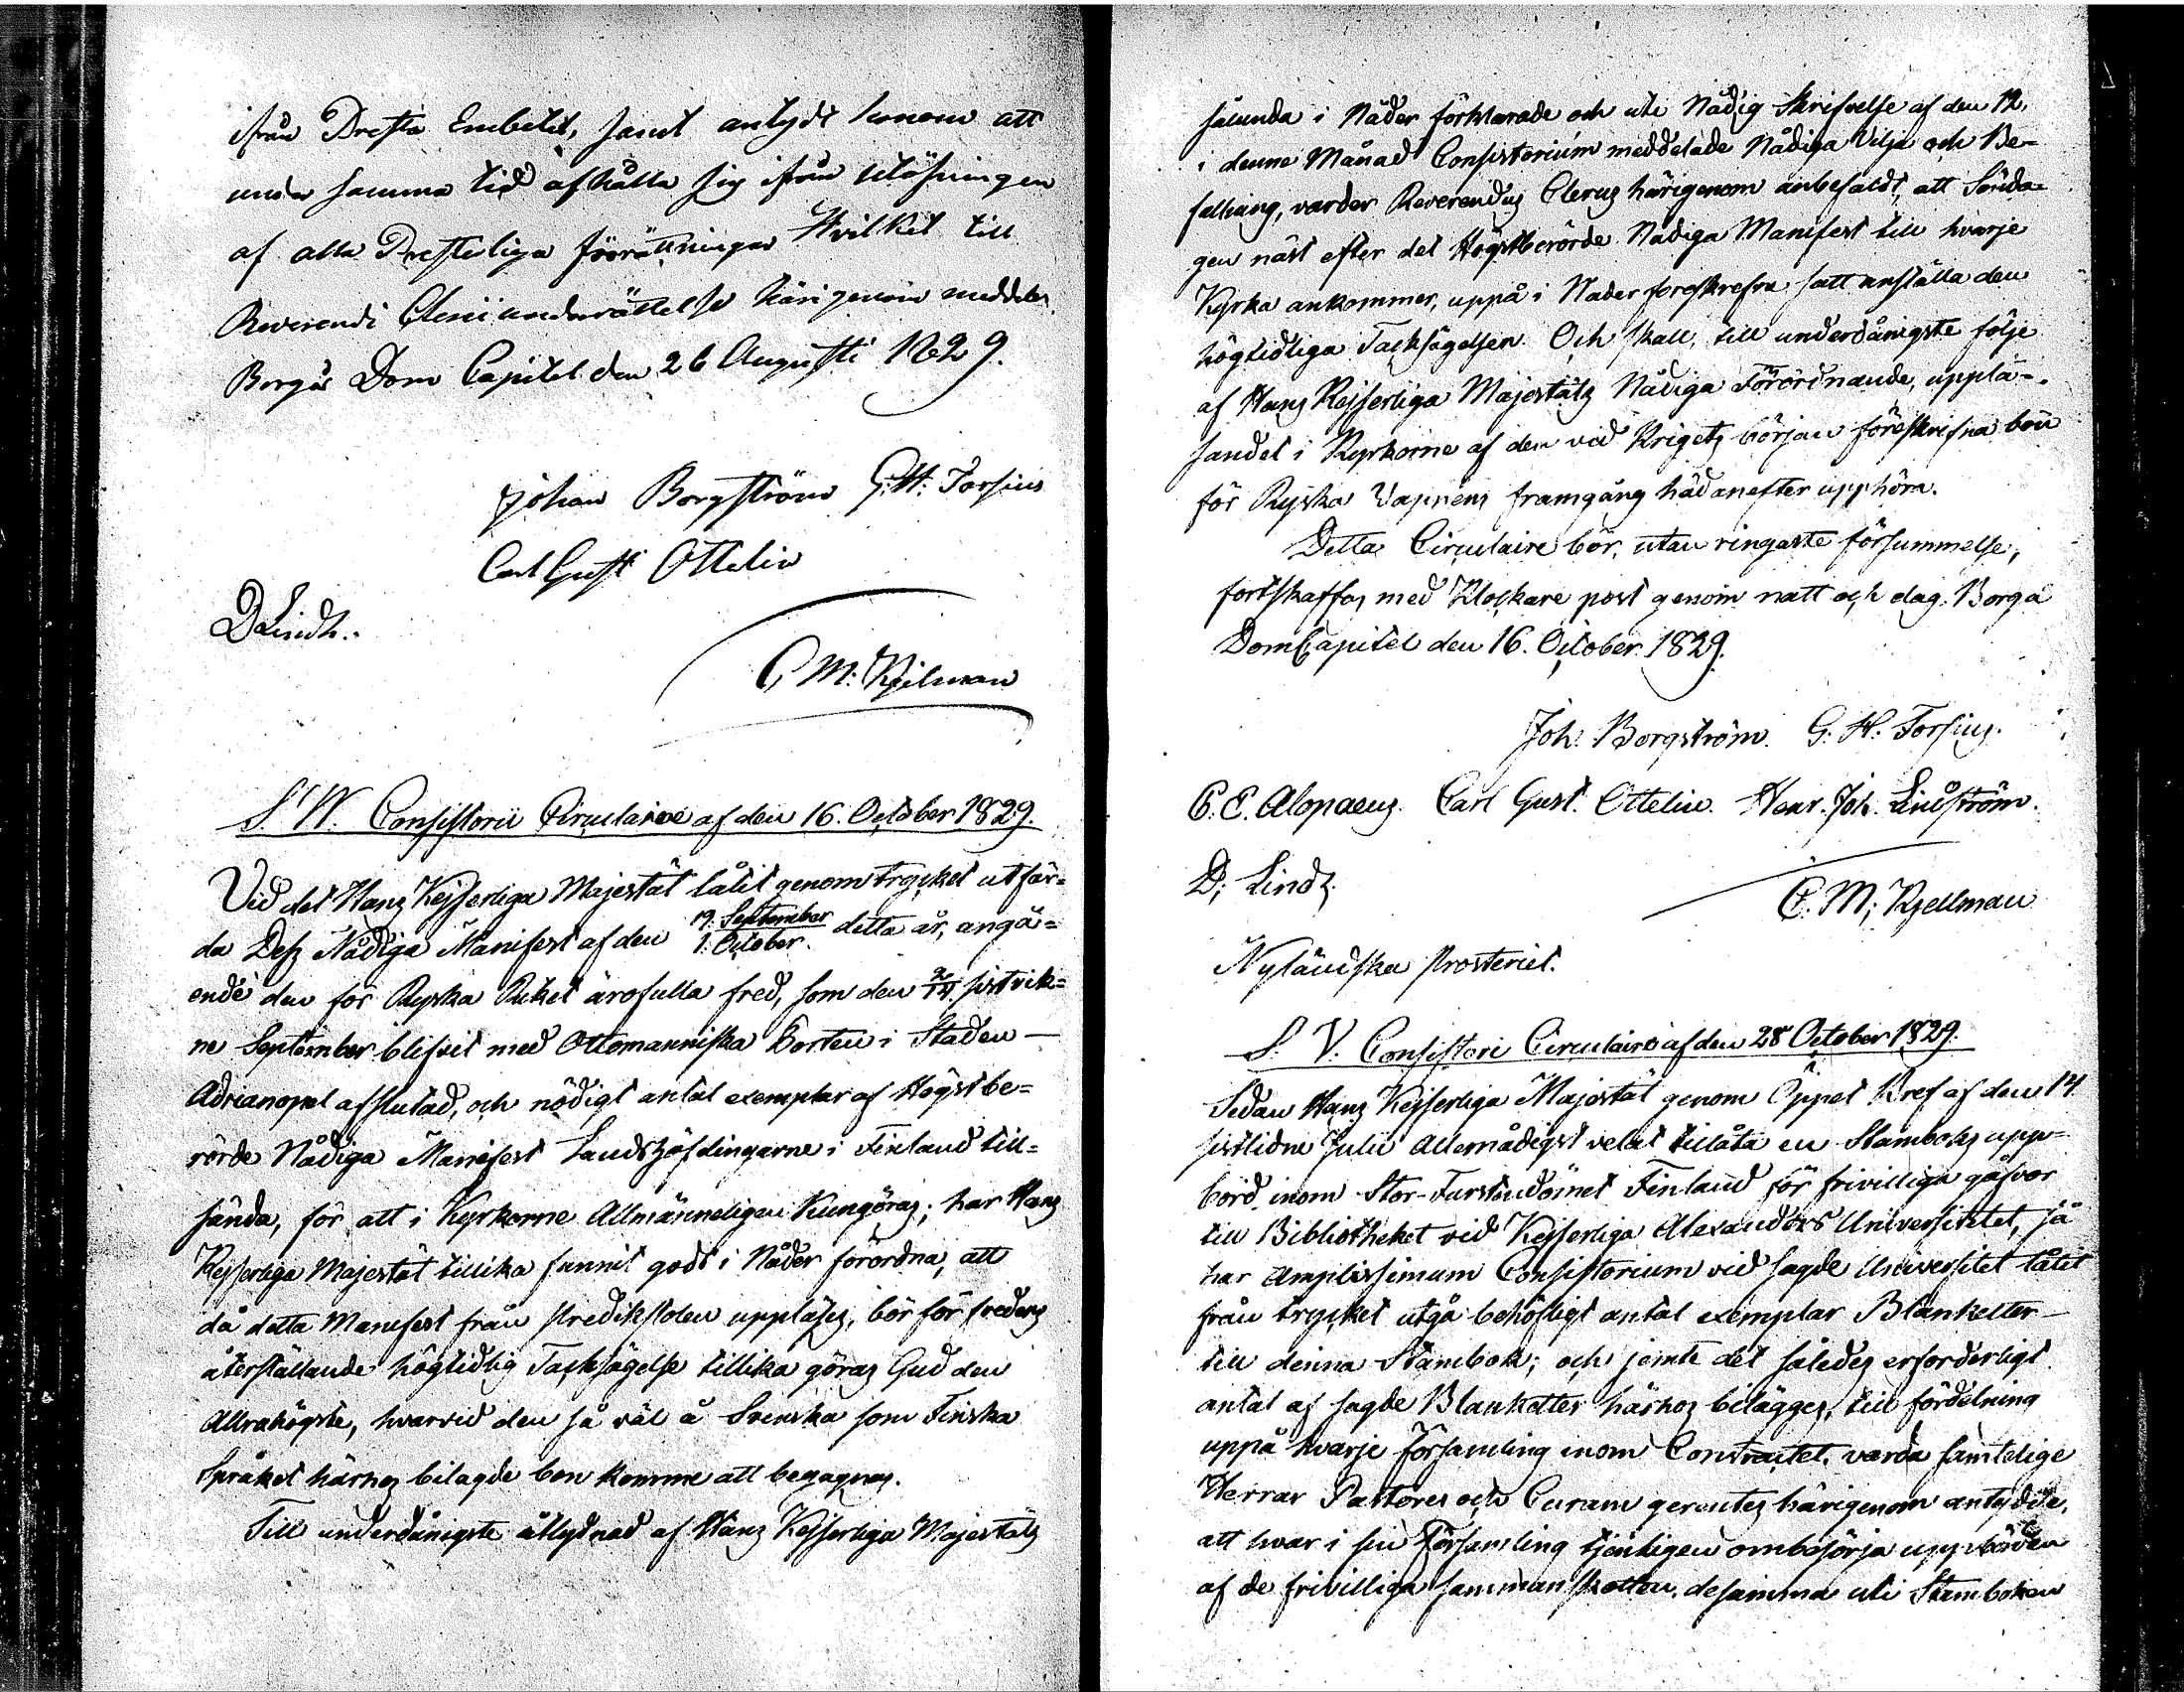 ifrån Presta Embetet, samt antydt honom att
under samma tid afhålla sig ifrån utöfningen
af alla Presterliga förrättningar Hvilket till
Reverendi Cleri underrättelse härigenom meddelas.
Borgå Dom Capitel den 26 Augusti 1829.
Johan Borgström G. H. Forsius
Carl Gust Ottelin
D Lindh.
C. M. Kjelman
S. W. Consistorii Circulaire af den 16. October 1829.
Vid det Hans Kejserliga Majestät låtit genom trycket utfär=
da Dess Nådiga Manifest af den 19. September / 1. October detta år, angå=
ende den för Ryska Riket ärofulla fred, som den 2/14 sistvik=
ne September blifvit med Ottomanniska Porten i Staden —
Adrianopel afslutad, och nödigt antal exemplar af Högstbe=
rörde Nådiga Manifest Landshöfdingarne i Finland till=
sända, för att i Kyrkorne Allmänneligen Kungöras; har Hans
Kejserliga Majestät tillika funnit godt i Nåder förordna, att
då detta Manifest från predikstolen uppläses, bör för fredens
återställande högtidlig Tacksägelse tillika göras Gud den
Allrahögste, hvarvid den så väl å Svenska som Finska
Språket härhos bilagde bön komme att begagnas.
Till underdånigste åtlydnad af Hans Kejserliga Majestäts
sålunda i Nåder förklarade och uti Nådig Skrifvelse af den 12.
i denne Månad Consistorium meddelade Nådiga Vilja och Be=
fallning, varder Reverendus Clerus härigenom anbefaldt, att Sönda=
gen näst efter det Högstberörde Nådiga Manifest till hvarje
Kyrka ankommer, uppå i Nåder föreskrefvn satt anställa den
högtidliga Tacksägelsen. Och skall, till underdånigste följe
af Hans Kejserliga Majestäts Nådiga Förordnande, upplä=
sandet i Kyrkorne af den vid Krigets början föreskrifna bön
för Ryska Vapnens framgång hädanefter upphöra.
Detta Circulaire bör, utan ringaste försummelse,
fortskaffas med Klockare post genom natt och dag. Borgå
DomCapitel den 16. October 1829.
Joh. Borgström. G. H. Forsius.
C. E. Alopaeus. Carl Gust. Ottelin. Henr. Joh. Lindström.
D. Lindh.
C. M. Kjellman
Nyländska Prosteriet.
S. V. Consistorii Circulaire af den 28 October 1829.
Sedan Hans Kejserliga Majestät genom Öppet Bref af den 14
sistlidne Julii Allernådigst velat tillåta en Stamboks upp=
börd inom Stor-Furstendömet Finland för frivilliga gåfvor
till Bibliotheket vid Kejserliga Alexanders Universitetet, så
har Amplissimum Consistorium vid sagde Universitet låtit
från trycket utgå behöfligt antal exemplar Blanketter —
till denna Stambok; och jemte det således erforderligt
antal af sagde Blanketter härhos bilägges, till fördelning
uppå hvarje Församling inom Contractet, varda samtelige
Herrar Pastores och Curam gerentes härigenom antydde,
att hvar i sin Församling tjenligen ombesörja uppbörden
af de frivilliga sammanskotten, desamma uti Stamboken